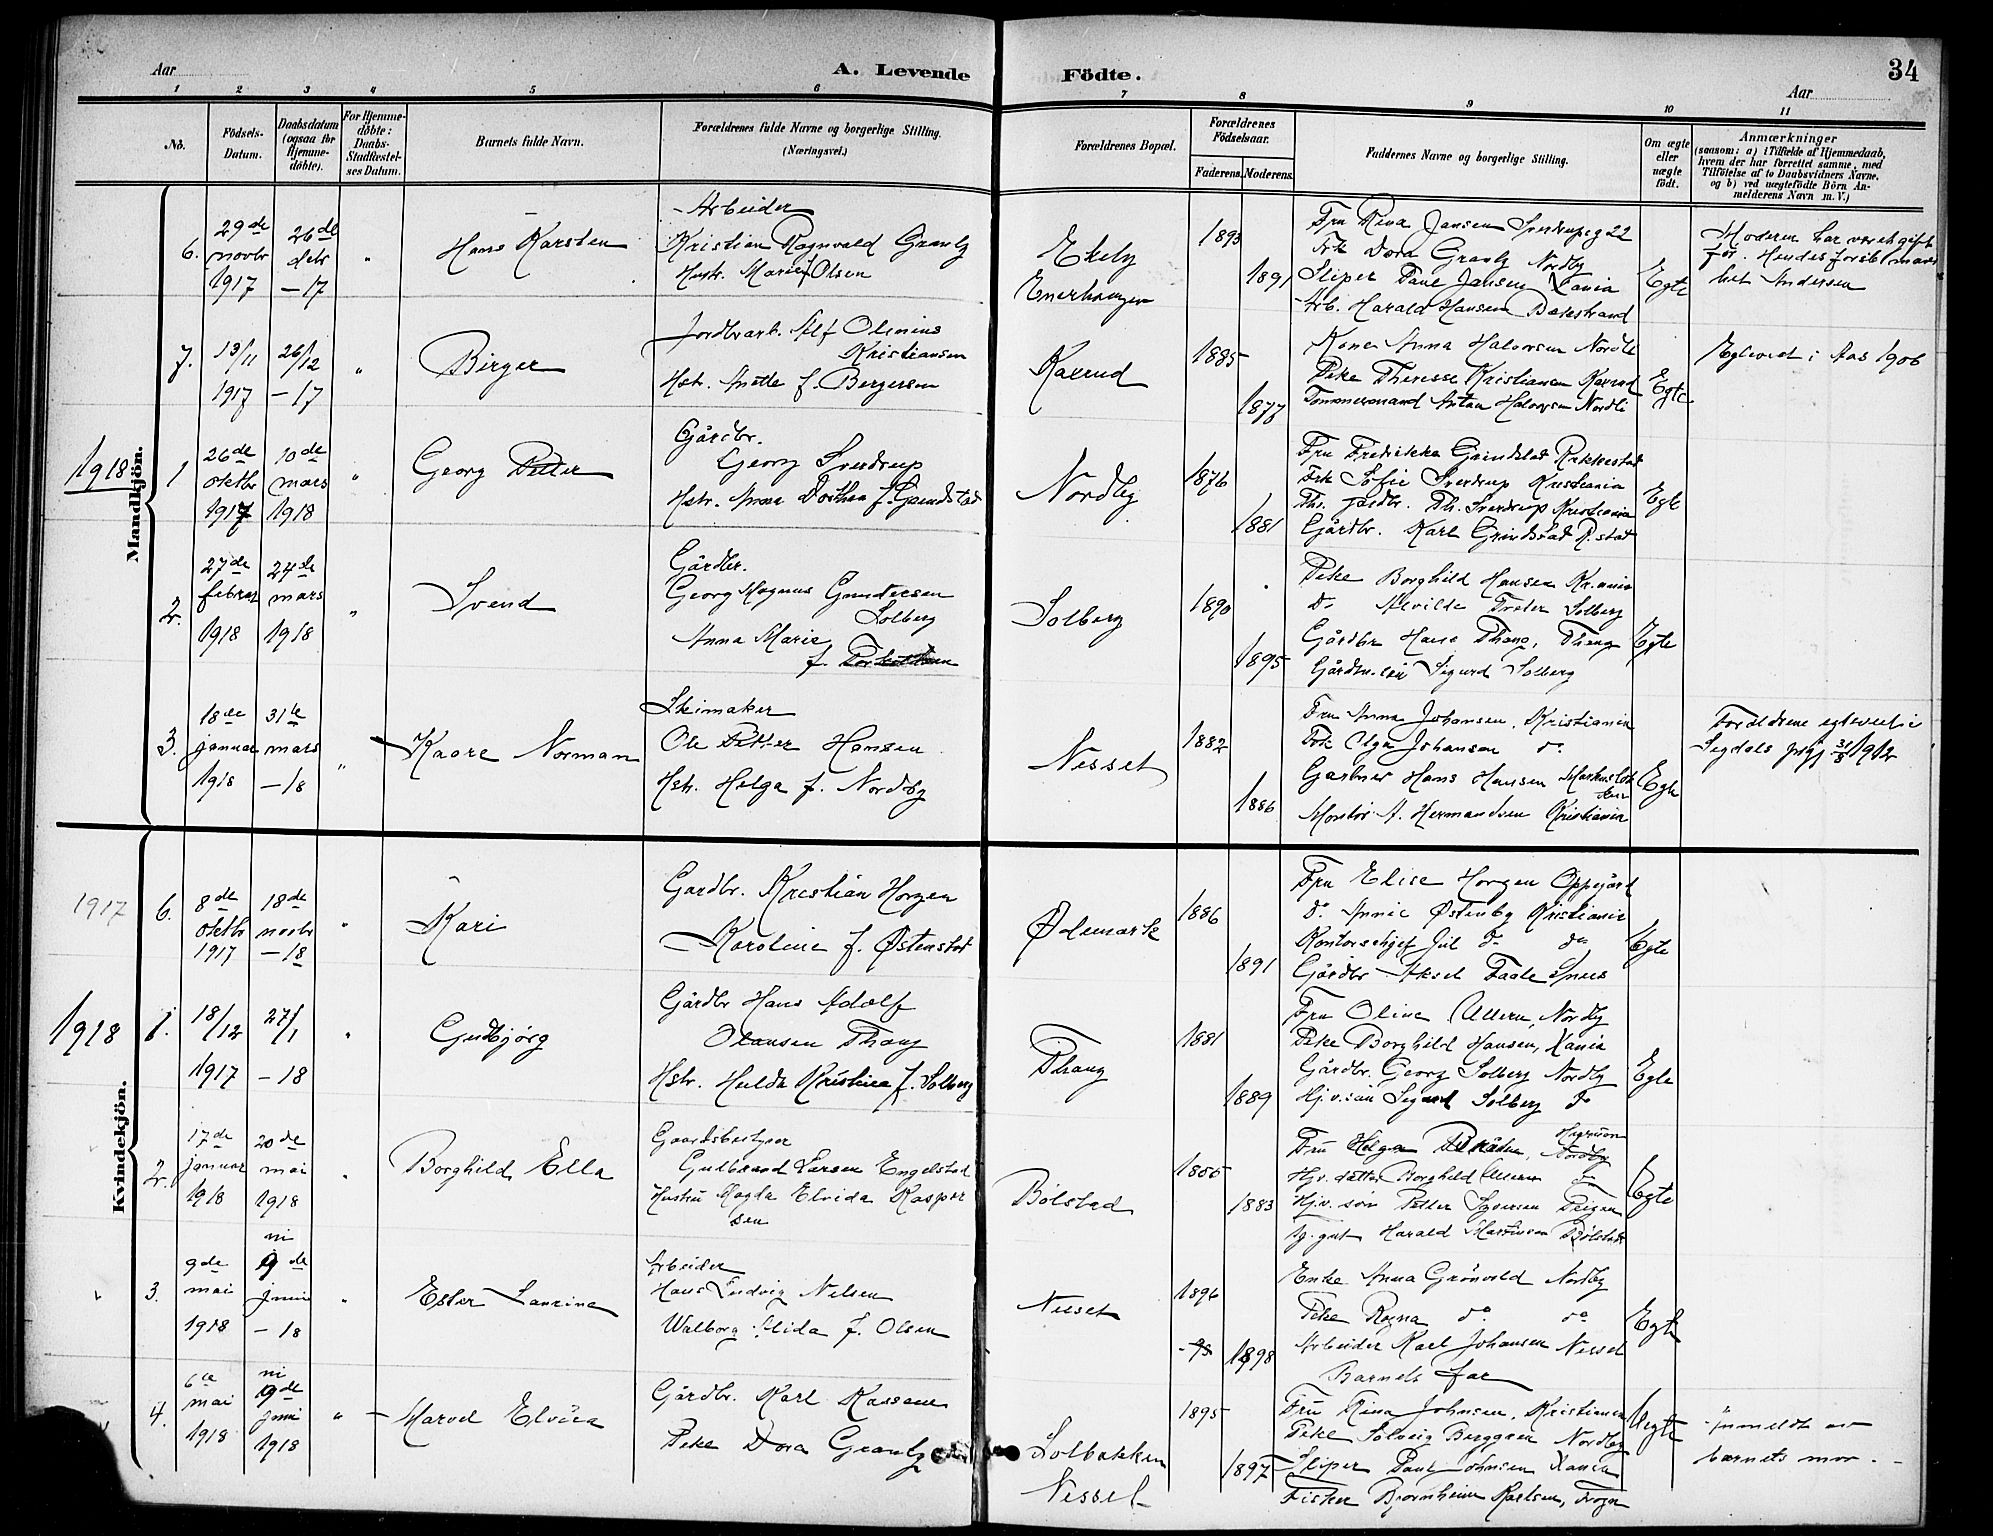 Aar
A. Levende
Födte.
34
Aar
1 2 3 4 5 6 7 8 9 10 11
No.
Födsels-
Datum.
Daabsdatum
(ogsaa for
Hjemme-
döbte).
For Hjemme-
döbte:
Daabs-
Stadfæstel-
ses Datum.
Barnets fulde Navn.
Forældrenes fulde Navne og borgerlige Stilling.
(Næringsvei.)
Forældrenes Bopæl.
Forældrenes
Födselsaar.
Faderens. Moderens.
Faddernes Navne og borgerlige Stilling.
Om ægte
eller
uægte
født.
Anmærkninger
(saasom: a) i Tilfælde af Hjemmedaab,
hvem der har forrettet samme, med
Tilföielse af to Daabsvidners Navne,
og b) ved uægtefödte Börn An-
melderens Navn m. V.)
Mandkjön.
6.
29de
novbr
1917
26de
debr
-17
"
Hans Karsten
Arbeider
Kristian Ragnvald Granby
Hustr. Marie f Olsen
Ekeby
Enerhaugen
1893
1891
Fru Rina Jansen Sverdrupsg 22
Frk Dora Granby Nordby
Sliper Paul Jansen Xania
Arb. Harald Hansen Bakstrand
Egte
Moderen har været gift
før. Hendes første mand
het Andersen
7.
13/11
1917
26/12
-17
"
Birger
Jordbrark. Alf Olinius
Kristiansen
Hstr. Anette f. Bergersen
Kaxrud
1885
1877
Kone Anna Halvorsen Nordli
Pike Theresse Kristiansen Kaxrud
Tømmermand Anton Halvorsen Nordli
Egte
Egteviet i Aas 1906
1918
1
26de
oktbr
1917
10de
mars
1918
"
Georg Petter
Gårdbr.
Georg Sverdrup
Hstr. Anna Dorthea f. Grindstad
Nordby
1876
1881
Fru Fredrikke Grindstad Rakkestad
Frk Sofie Sverdrup Kristiania
Th. gårdbr. Th. Sverdrup Kristiania
Gårdbr. Karl Grindstad R.stad
Egte
2.
27de
februar
1918
24de
mars
1918
"
Svend
Gårdbr.
Georg Magnus Gundersen
Solberg
Anna Marie
f.
Solberg
1890
1895
Pike Borghild Hansen Kr.ania
do Alvilde Froter Solberg
Gårdbr Hans Thang, Thang
Gårdbr.søn Sigurd Solberg
Egte
3.
18de
januar
1918
31te
mars
-18
"
Kaare Norman
Skimaker
Ole Petter Hansen
Hstr. Helga f. Nordby
Nesset
1882
1886
Fru Anna Johansen, Kristiania
Frk Olga Johansen do
Gartner Hans Hansen
Montør A. Hermandsen Kristiania
Egte
Forældrene egteviet i
Sigdals prgj 31/8 1912
Kvindekjön.
1917
6.
8de
oktbr
1917
18de
novbr
-18
"
Kari
Gardbr. Kristian Horgen
Karoline f. Østenstad
Ødemark
1886
1891
Fru Elise Horgen Oppegård
do Annie Østenby Kristiania
Kontorschef Jul do do
Gårdbr Aksel Faale
Egte
1918
1.
18/12
1917
27/1
-18
"
Gudbjørg
Gårdbr Hans Adolf
Olausen Thang
Hstr. Hulda Kristine f. Solberg
Thang
1881
1889
Fru Oline Ullern, Nordby
Pike Borghild Hansen, Xania
Gårdbr. Georg Solberg Nordby
Hjv.søn Sigurd Solberg do
Egte
2.
17de
januar
1918
20de
mai
1918
"
Borghild Ella
Gaardsbestyrer
Gulbrand Larsen Engelstad
Hustru Magda Elvida Kasper
sen
Bølstad
1883
Fru Helga
Nordby
Hjv.datter Borghild Ullern do
Hjv. søn Petter Syversen Teigen
Harald Martinsen Bølstad
Egte
3.
9de
mai
1918
ni
9de
juni
-18
"
Ester Laurine
Arbeider
Hans Ludvig Nilsen
Walborg Alida f. Olsen
Nesset
1896
1898
Enke Anna Grönvold Nordby
Pike Ragna do do
Arbeider Karl Johansen Nesset
Barnets far
Egte
4.
6te
mai
1918
ni
9de
juni
1918
"
Marvel Elvira
Gårdbr. Karl Kassem
Pike Dora Granby
Solbakken
Nesset
1895
1897
Fru Rina Johnsen, Kristiania
Pike Solveig Berggren Nordby
Sliper Paul Johnsen Xania
Fisker Bjarnheim Karlsen, Frogn
Uegte
Inmeldt av
barnets mor.